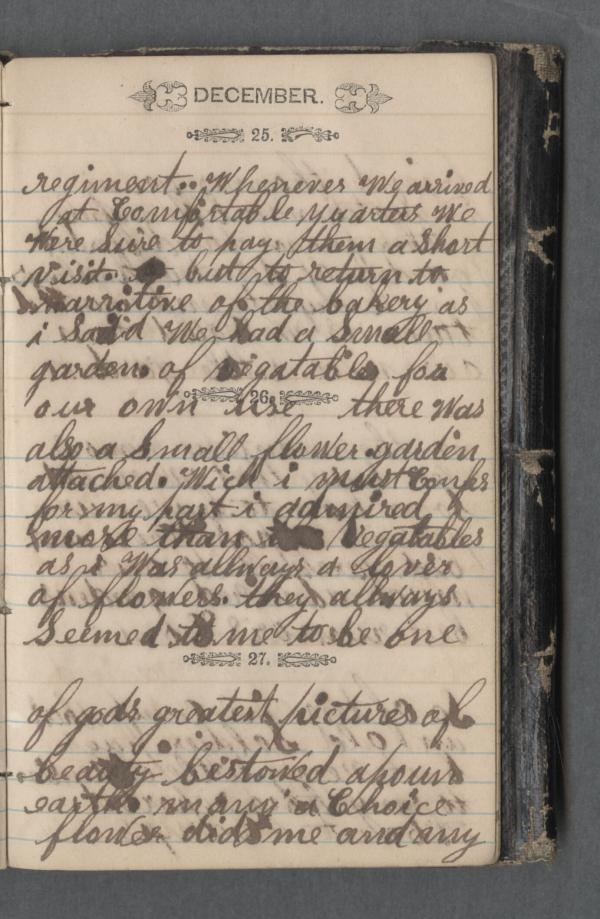 DECEMBER.
25.
regiment.. Whenever We arrived
at Comfortable quarters We
Were Sure to pay them a Short
Visit. but to return to
narritive of the bakery as
i Said We had a Small
garden of vigatable for
26.
our own use there Was
also a Small flower garden
attached. Wich i must Confes
for my part i admired
more than Vegatables
as i Was allways a lover
of flowers. they allways
Seemed to me to be one
27.
of gods greatest pictures of
beauty bestowed apoun
earth many a Choice
flower did me and my